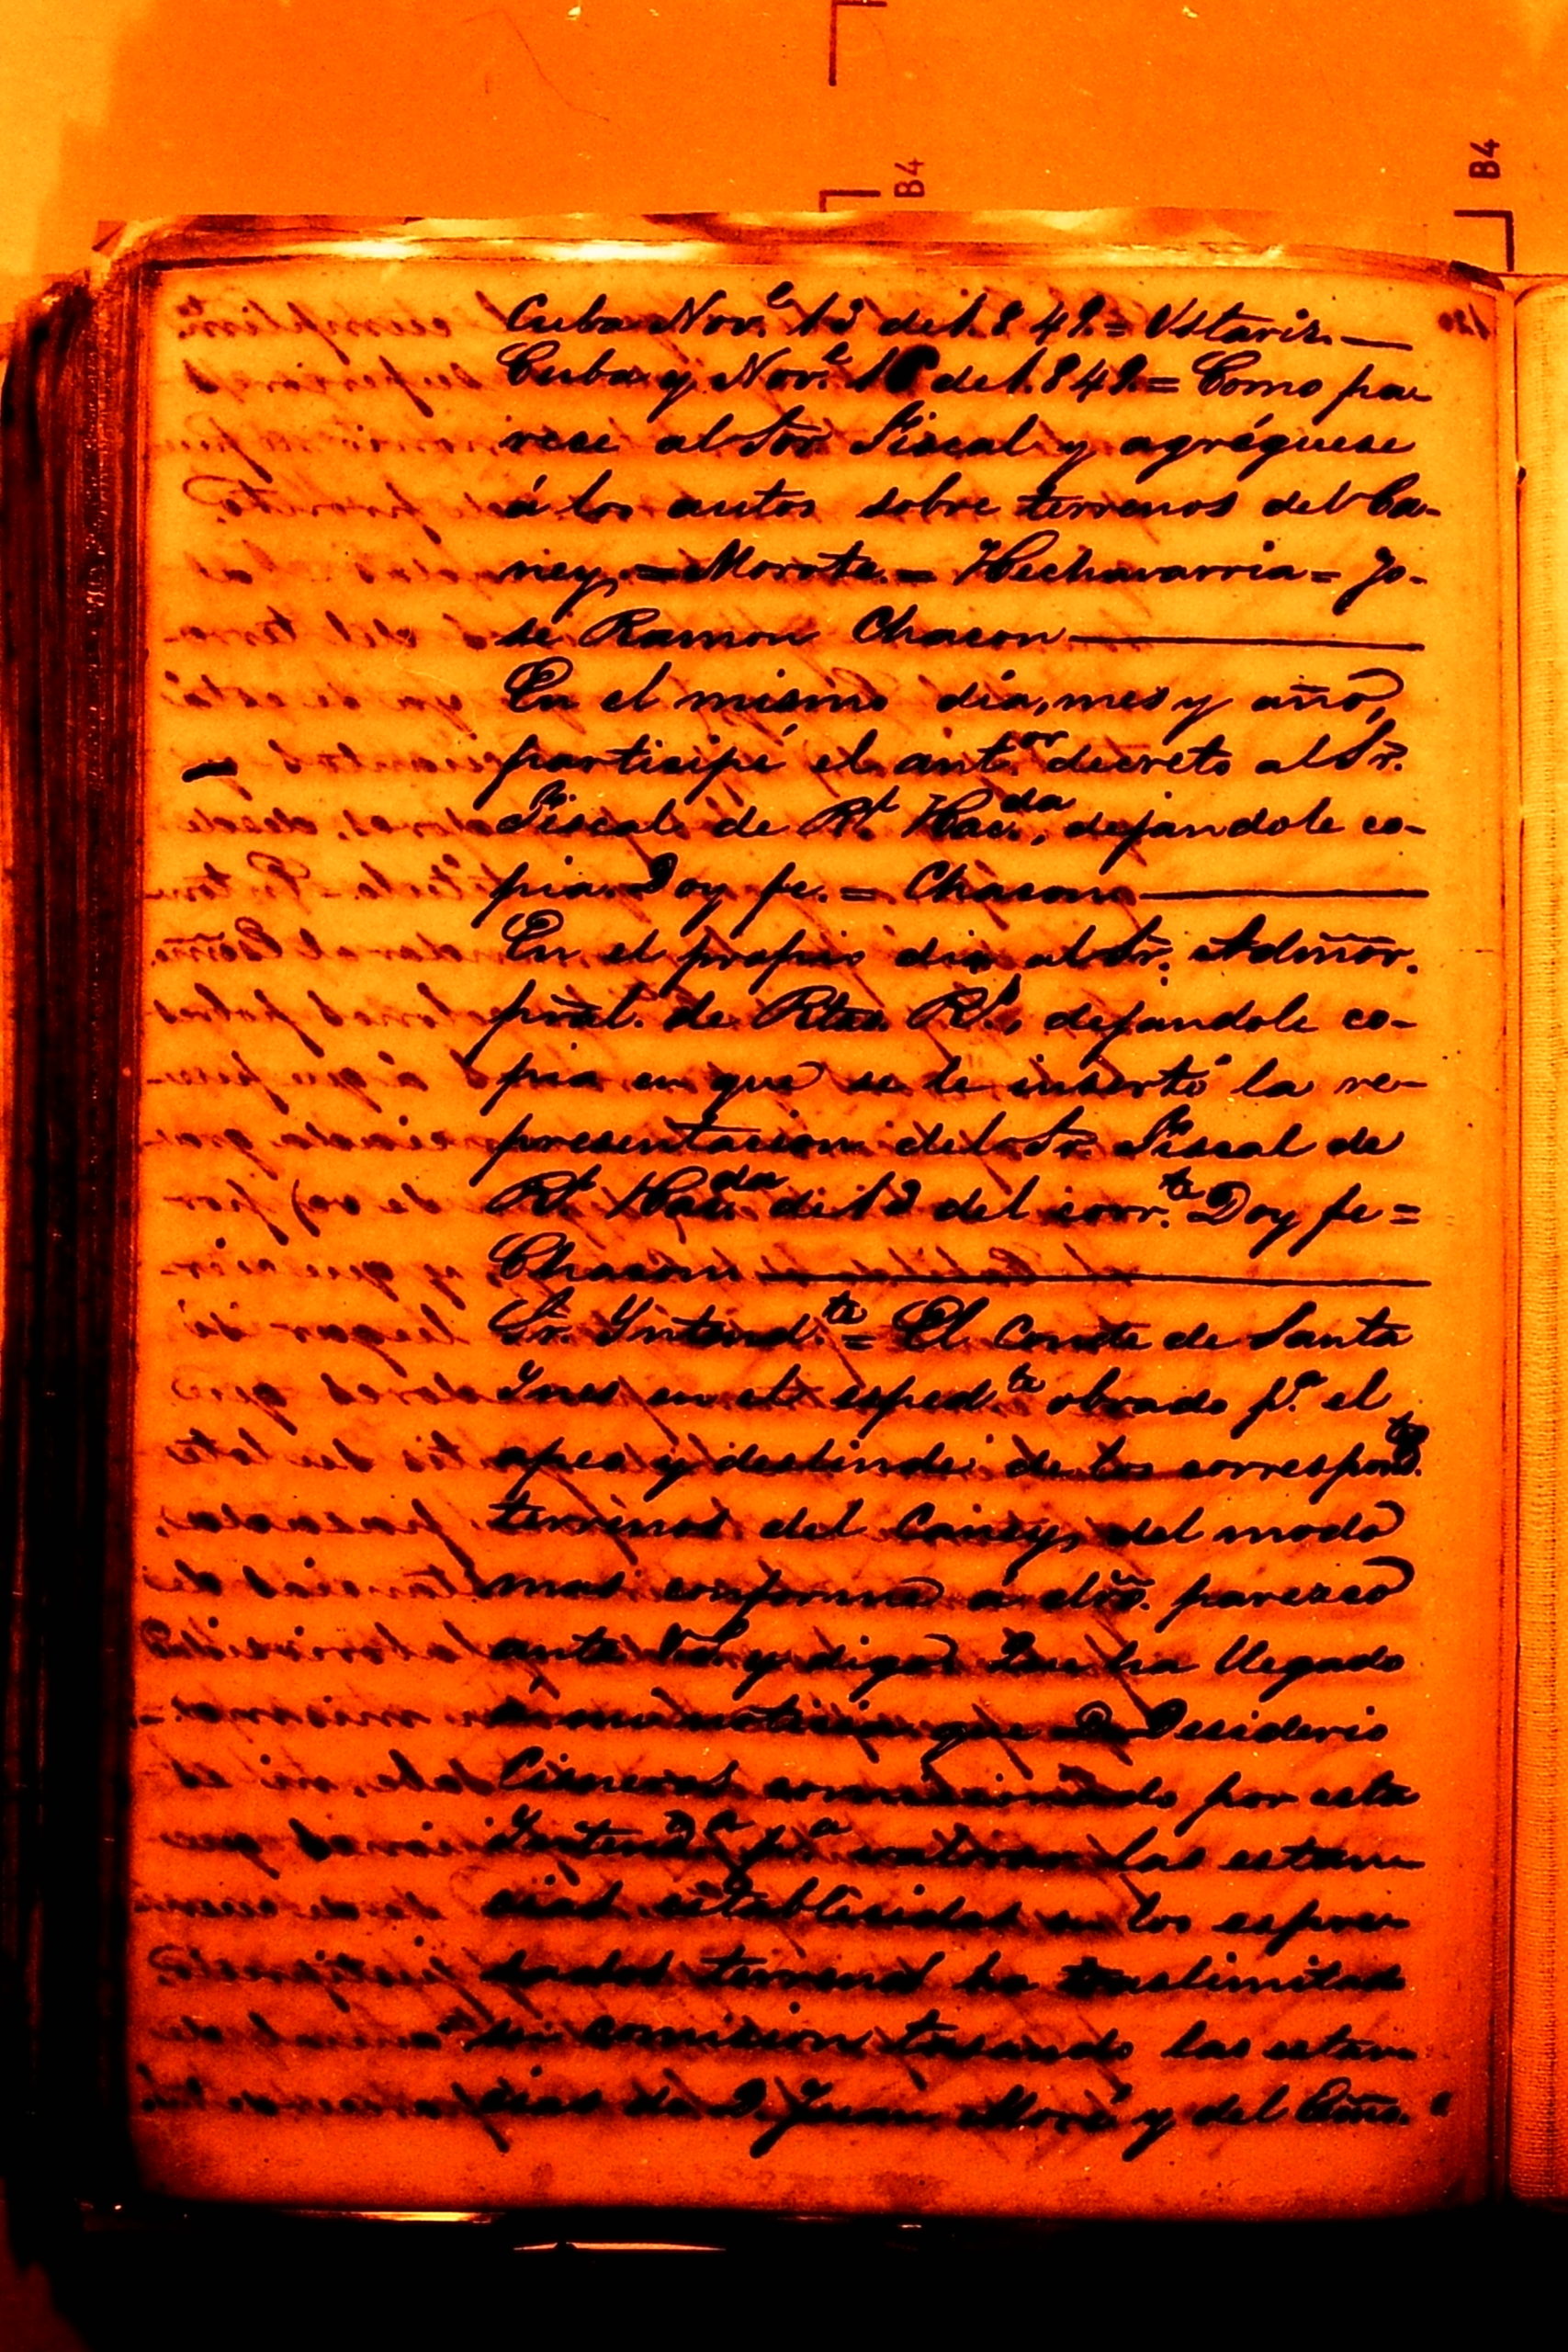 B4
B4
Cuba Nov.e 13 de 1.849.= Ustariz.—
Cuba y Nov.e 16 de 1.849.= Como pa-
rece al Sor Fiscal y agréguese
á los autos sobre terrenos del Ca-
ney.= Morote.= Hechavarria= Jo-
sé Ramon Chacon
En el mismo dia, mes y año,
participé el ant.or decreto al Sr.
Fiscal de Rl Hac.da, dejandole co-
pia. Doy fe.= Chacon
En el propio dia al Sr. Admor.
pral. de Rtas. Rs., dejandole co-
pia en que se le insertó la re-
presentacion del Sr. Fiscal de
Rl Hac.da de 13 del corr.te Doy fe=
Chacon
Sr. Yntend.te= El Conde de Santa
Ynes en el esped.te obrado p.a el
apeo y deslinde de los correspond.tes
terrenos del Caney, del modo
mas conforme a dro. parezco
ante V.S. y digo: Que ha llegado
a mi noticia que D. Desiderio
Cisneros comisionado por esta
Yntend.a p.a valorar las estan-
cias establecidas en los espre-
sados terrenos ha traslimitado
su comision tasando las estan-
cias de D. Juan Moré y del Esmo.